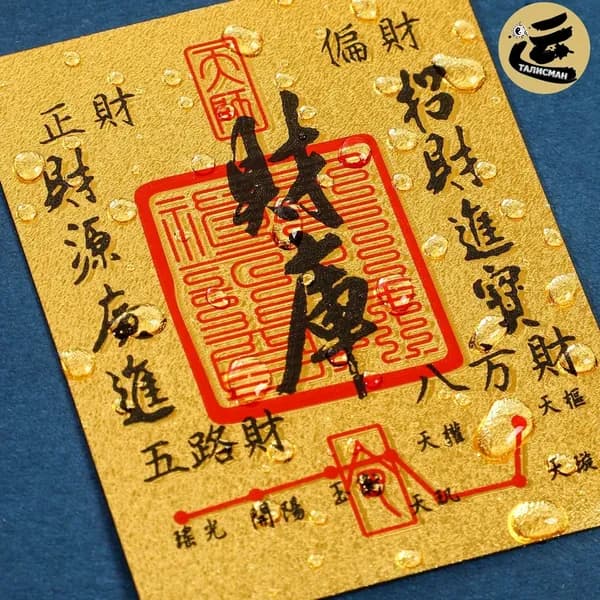 運
ТАЛИСМАН
偏財
天師
正財
招財進寶
財庫
財源廣進
八方財
五路財
天樞
天權
天璇
玉衡
天璣
開陽
瑤光